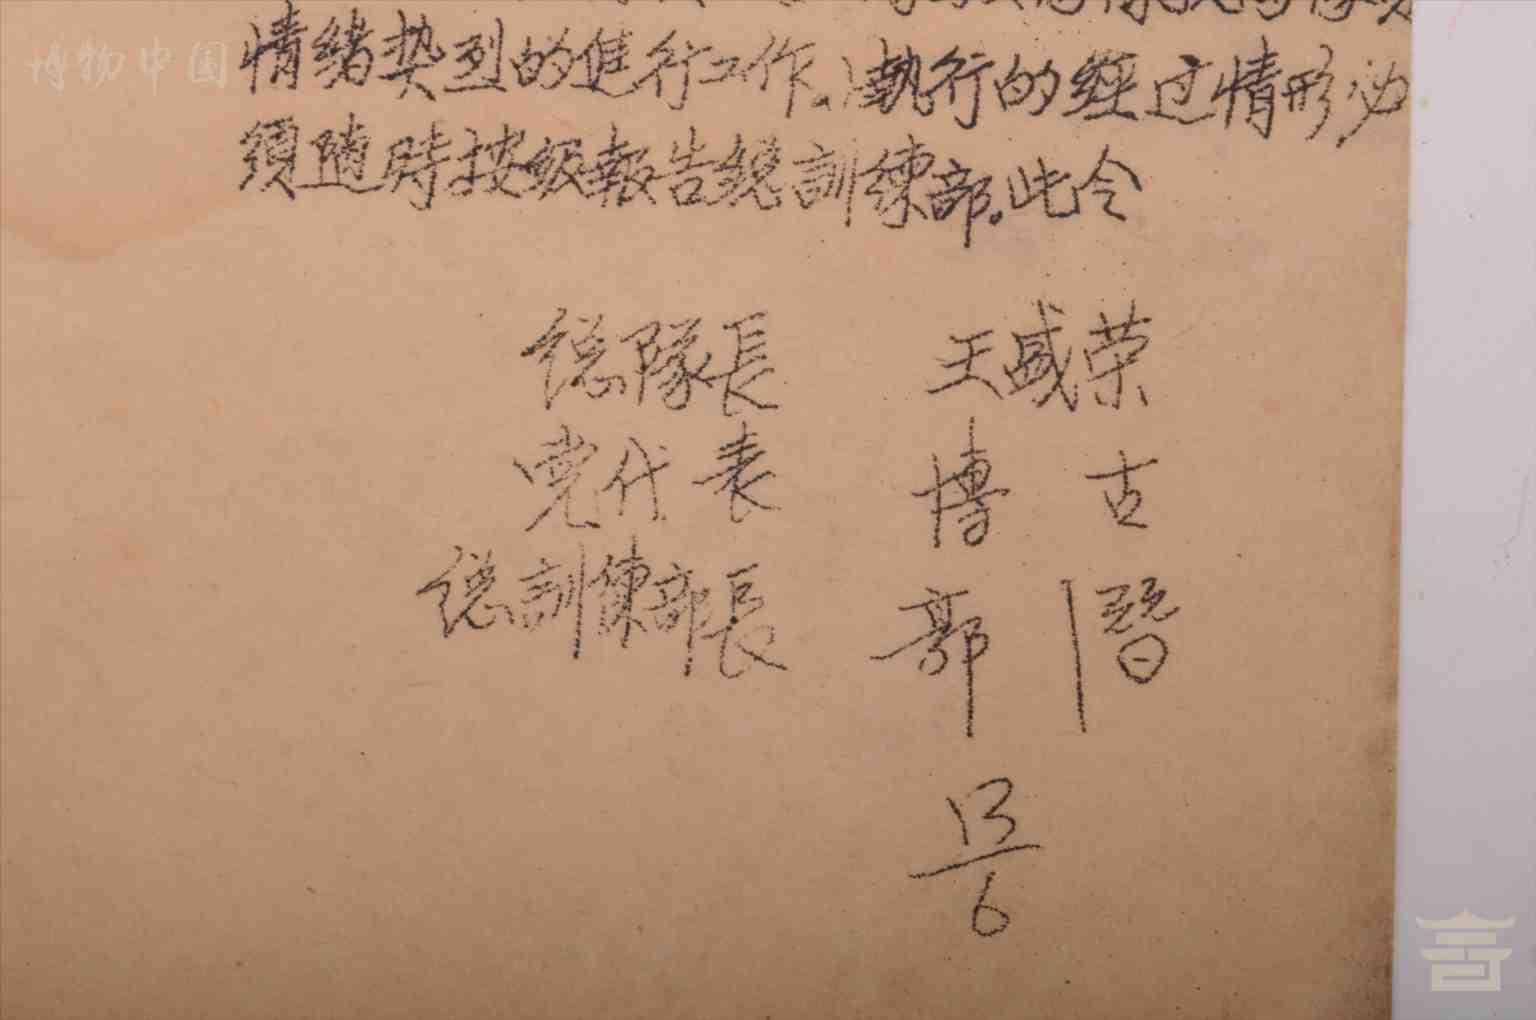 博物中国
情绪热烈的進行工作。執行的經过情形必
須随時按级報告総訓練部。此令
総隊長 王盛荣
党代表 博古
総訓練部長 郭 暦
13
6